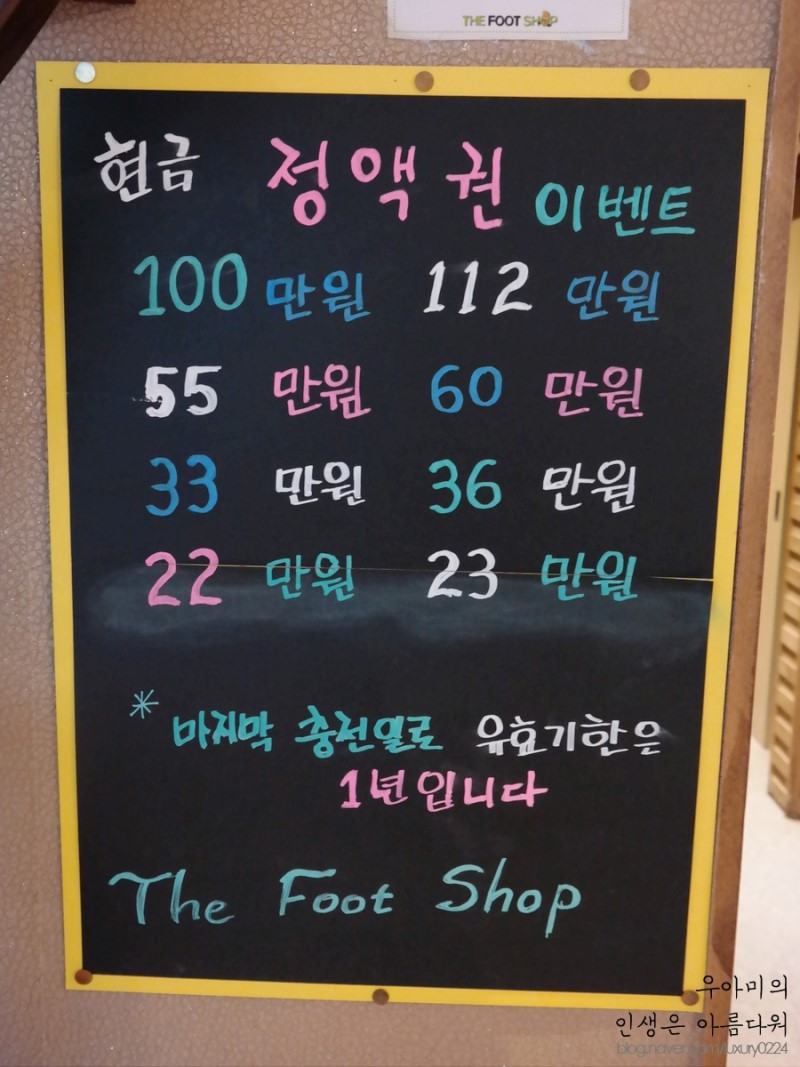 THE FOOT SHOP
현금 정액권 이벤트
100 만원 112 만원
55 만원 60 만원
33 만원 36 만원
22 만원 23 만원
* 마지막 충전일로 유효기한은
1년입니다
The Foot Shop
우아미의
인생은 아름다워
blog.naver.com/luxury0224